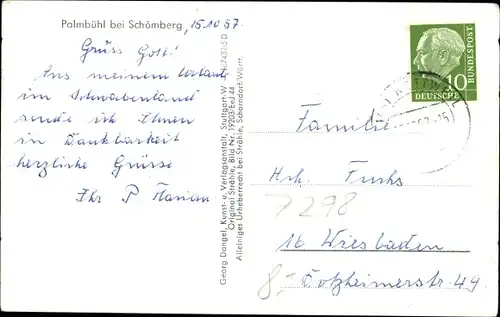 Palmbühl bei Schömberg, 15.10.57
Grüss Gott!
Aus meinem Urlaub
im Schwabenland
sende ich Ihnen
in Dankbarkeit
herzliche Grüsse
Ihr P Florian
Georg Dangel, Kunst- u. Verlagsanstalt, Stuttgart-W
Original Strähle, Bild Nr. 19203/EeJ 44
Alleiniges Urheberrecht bei Strähle, Schorndorf/Württ.
10
DEUTSCHE
BUNDESPOST
Familie
Hch. Fuchs
7298
16 Wiesbaden
8,-
Dotzheimerstr 49.